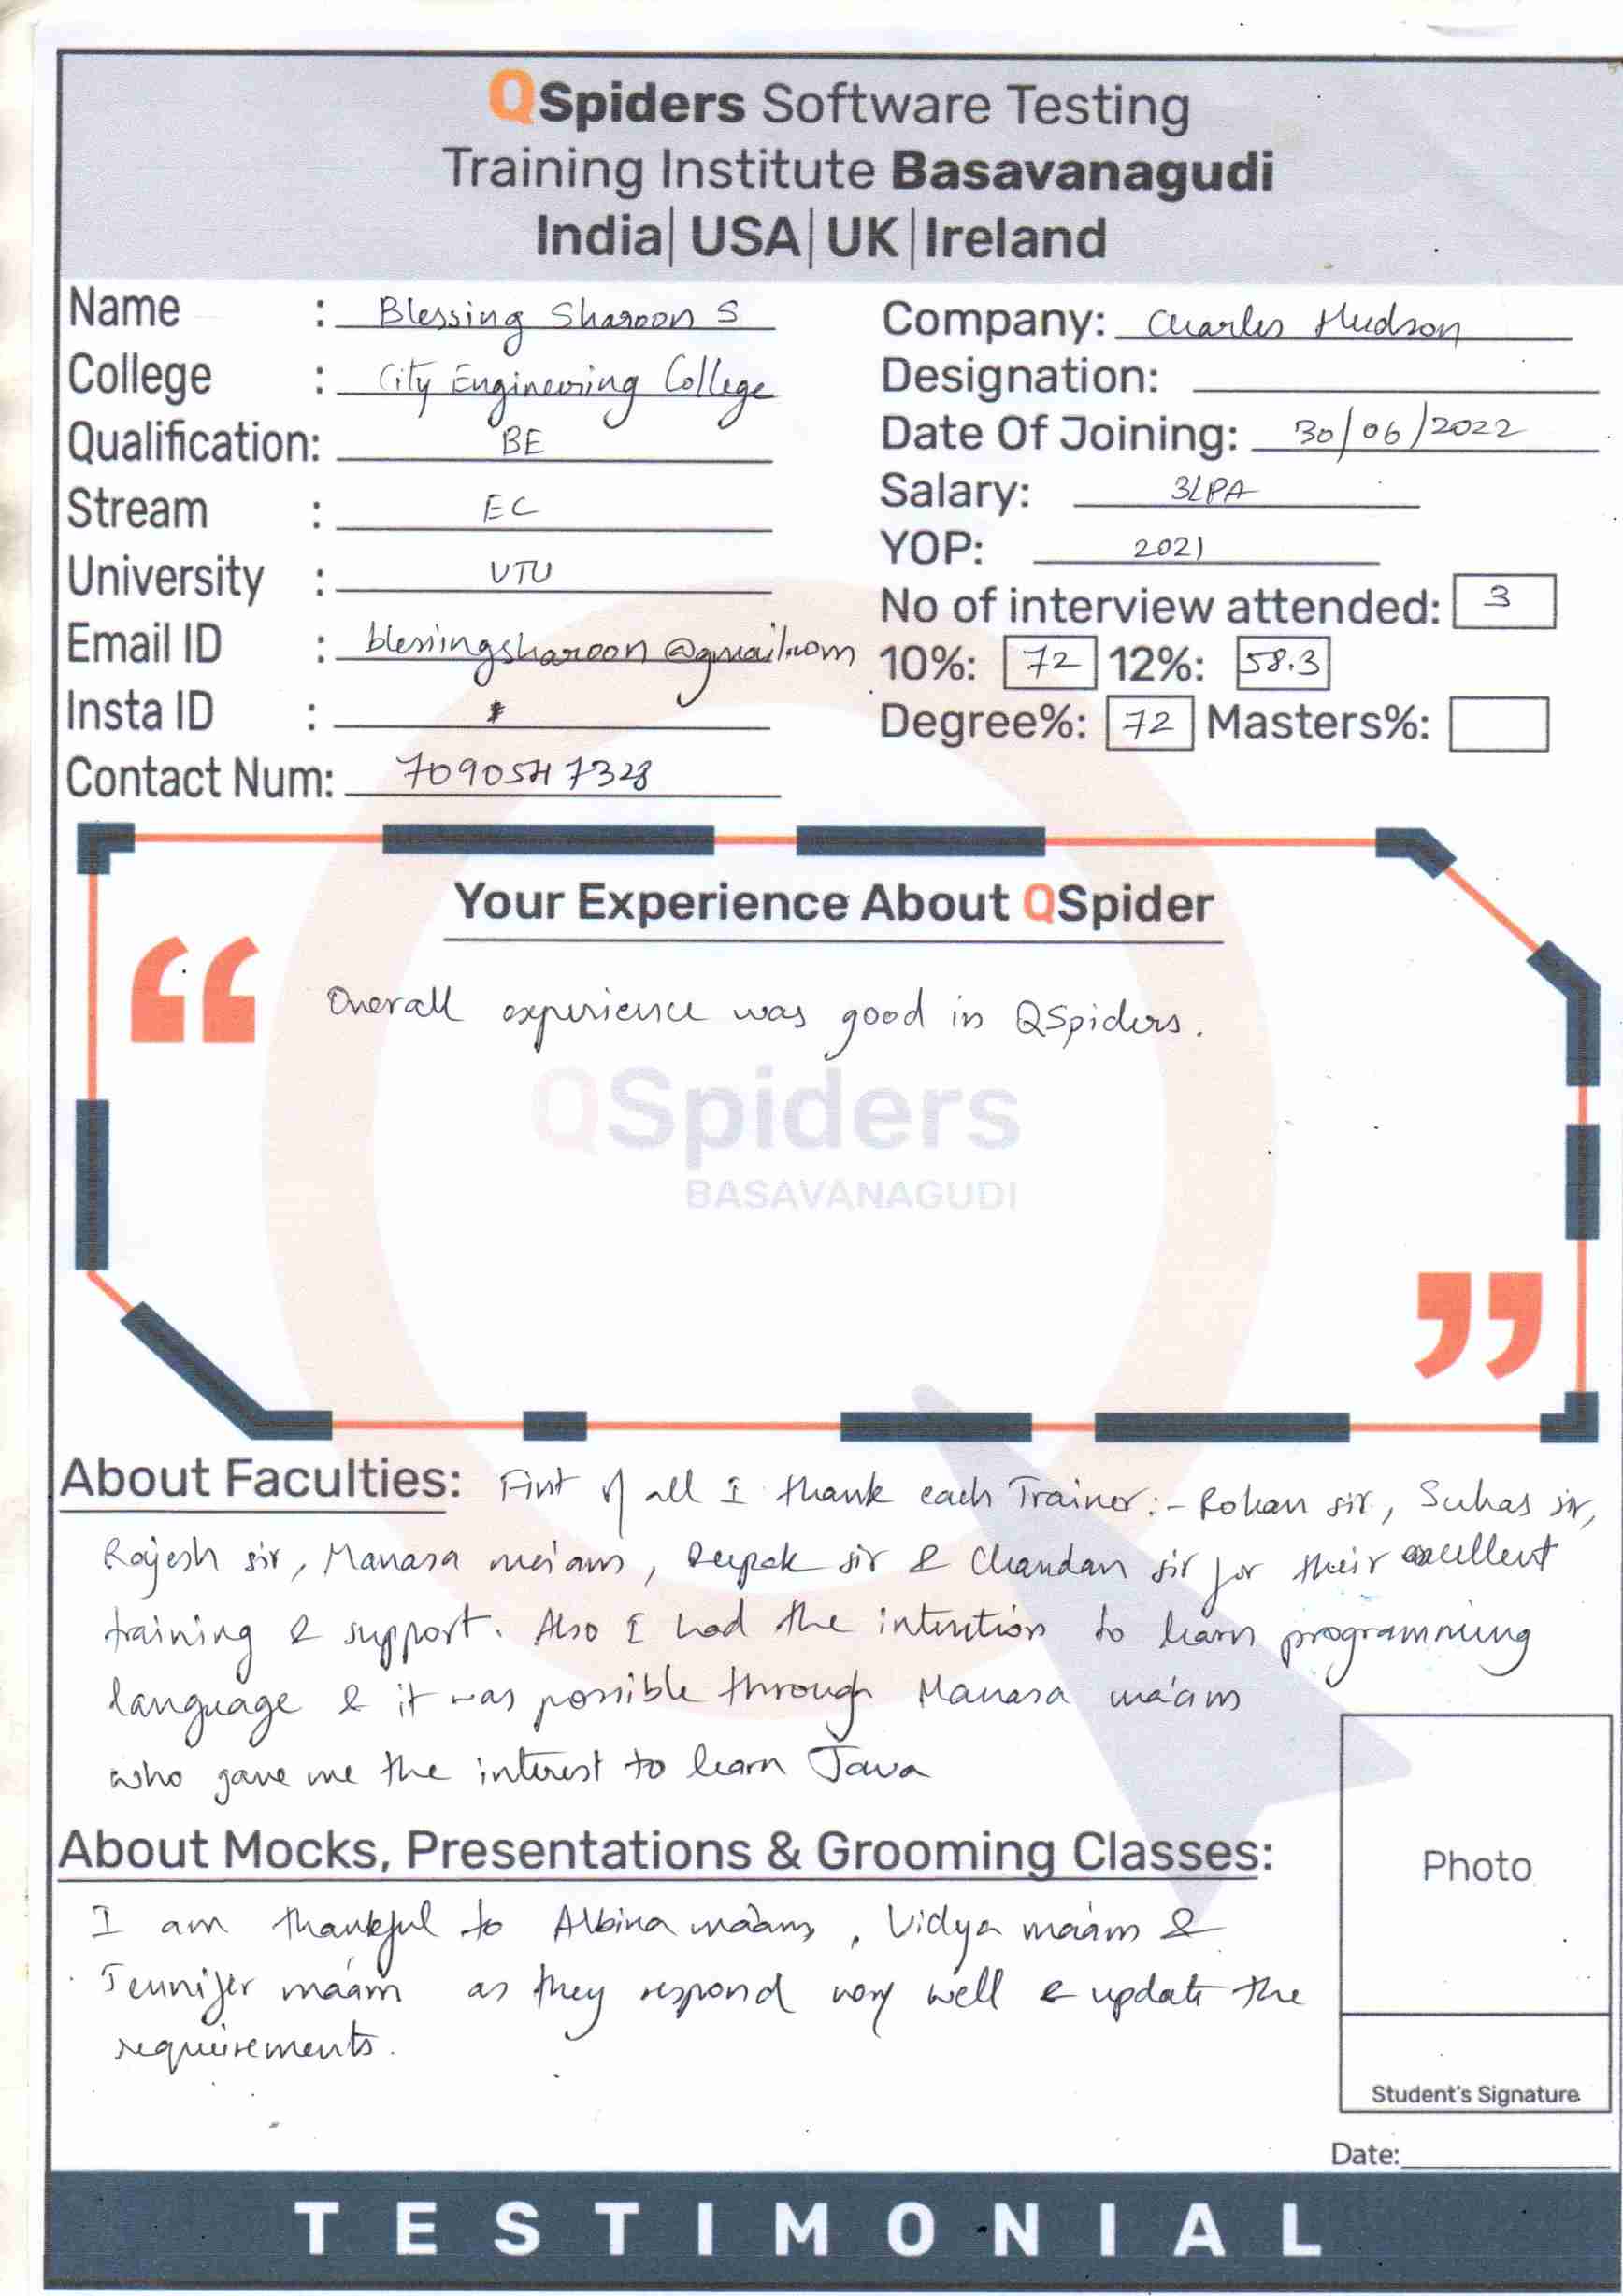 QSpiders Software Testing
Training Institute Basavanagudi
India| USA| UK |Ireland
Name : Blessing Sharoon S
College : City Engineering College
Qualification: BE
Stream : EC
University : VTU
Email ID : blessingsharoon@gmail.com
Insta ID :
Contact Num:
Company: Charles Hudson
Designation:
Date Of Joining: 30/06/2022
Salary: 3LPA
YOP: 2021
No of interview attended: 3
10%: 72 12%: 58.3
Degree%: 72 Masters%:
Your Experience About QSpider
Overall experience was good in QSpiders.
QSpiders
BASAVANAGUDI
About Faculties: First of all I thank each Trainer:- Rohan sir, Suhas sir,
Rajesh sir, Manasa ma'am, Deepak sir & Chandan sir for their excellent
training & support. Also I had the intention to learn programming
language & it was possible through Manasa ma'am
who gave me the interest to learn Java
About Mocks, Presentations & Grooming Classes:
I am thankful to Albina ma'am, Vidya ma'am &
Jennifer ma'am as they respond very well & update the
requirements.
Photo
Student's Signature
Date:
TESTIMONIAL